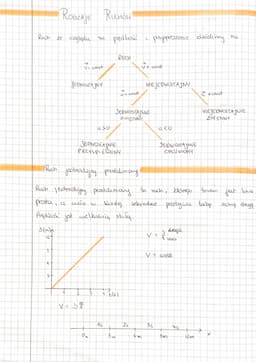 Rodzaje Ruchu
Ruch ze względu na prędkość i przyspieszenie dzielimy na
RUCH
V = const V ≠ const
JEDNOSTAJNY NIEJEDNOSTAJNY
a = const a ≠ const
JEDNOSTAJNIE ZMIENNY NIEJEDNOSTAJNIE ZMIENNY
a > 0 a < 0
JEDNOSTAJNIE PRZYSPIESZONY JEDNOSTAJNIE OPÓŹNIONY
Ruch jednostajny prostoliniowy
Ruch jednostajny prostoliniowy to ruch, którego torem jest linia
prosta, a ciało w każdej sekundzie przebywa taką samą drogę
Prędkość jest wielkością stałą
V = s droga
t czas
V = const
t(s)
0m 3m 6m 9m 12m x